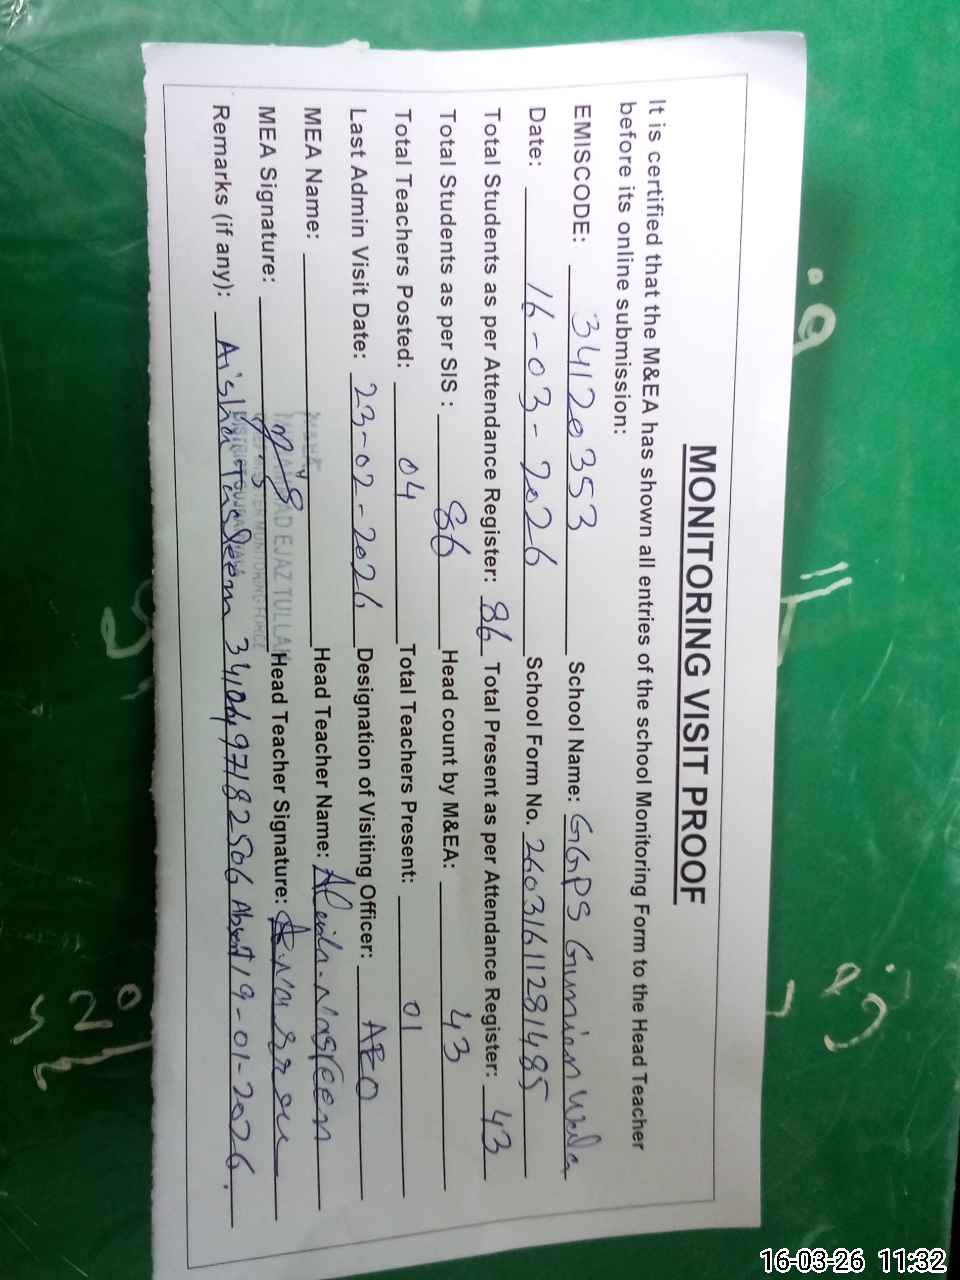 MONITORING VISIT PROOF
It is certified that the M&EA has shown all entries of the school Monitoring Form to the Head Teacher
before its online submission:
EMISCODE: 34120353 School Name: GGPS Gumian Wala
Date: 16-03-2026 School Form No. 260316112814 85
Total Students as per Attendance Register: 86 Total Present as per Attendance Register: 43
Total Students as per SIS : 86 Head count by M&EA: 43
Total Teachers Posted: 04 Total Teachers Present: 01
Last Admin Visit Date: 23-02-2026 Designation of Visiting Officer: AEO
MEA Name: Head Teacher Name: Nasreen
AD EJAZ TULLAH
MEA Signature: Head Teacher Signature:
MONITORING FORCE
Remarks (if any): Aisha Tasleem Absent 19-01-2026.
16-03-26 11:32